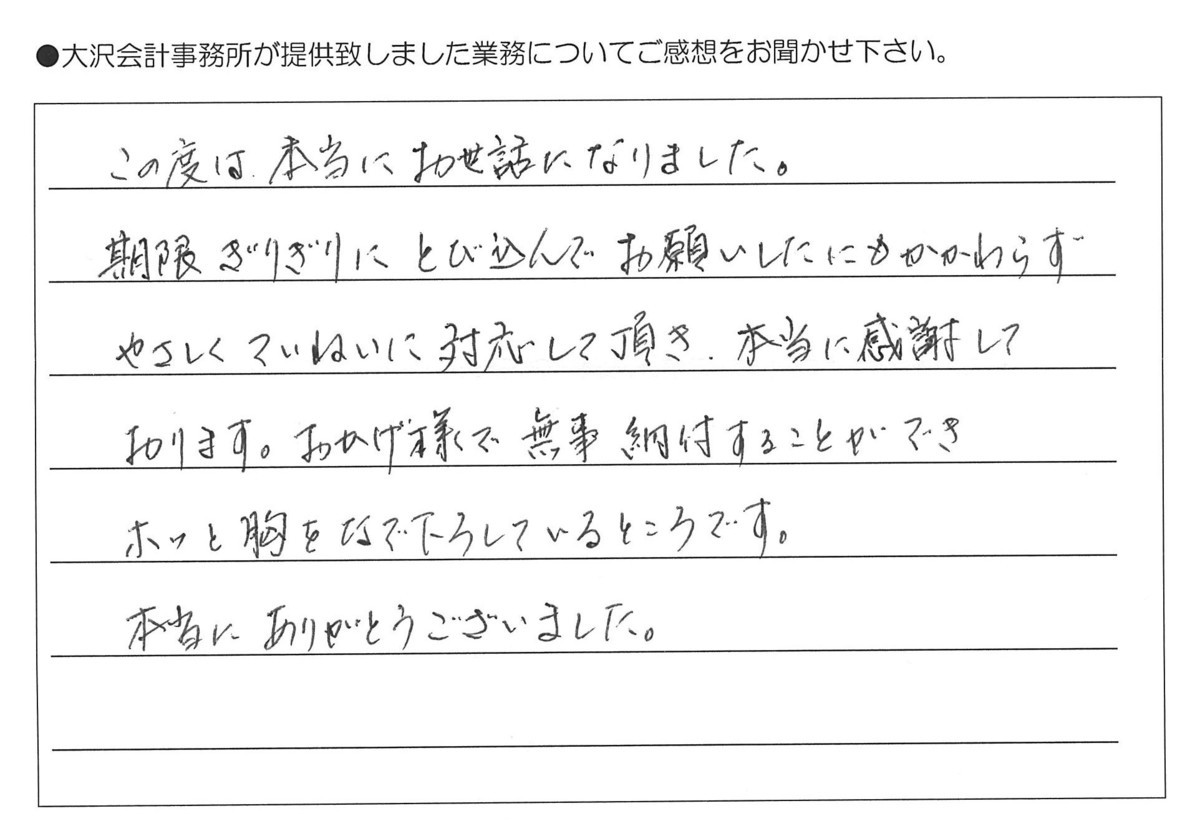 ●大沢会計事務所が提供致しました業務についてご感想をお聞かせ下さい。
この度は、本当にお世話になりました。
期限ぎりぎりにとび込んでお願いしたにもかかわらず
やさしくていねいに対応して頂き、本当に感謝して
おります。おかげ様で無事納付することができ
ホッと胸をなで下ろしているところです。
本当にありがとうございました。